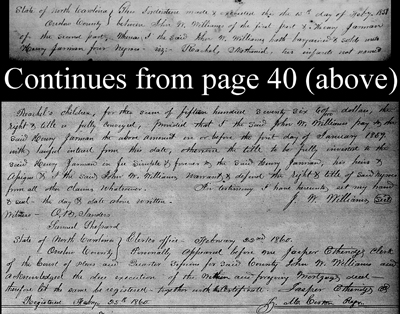 State of North Carolina This Indenture made & executed this the 25th day of Feby. 1858
Onslow County between John W. Williams of the first part & Henry Jarman
of the second part, Witness: that the said John W. Williams hath bargained & sold unto
Henry Jarman four Negroes viz: Rachel, two infants not named
Continues from page 40 (above)
Rachel's children, for the sum of fifteen hundred & seventy six dollars, the
right & title is fully conveyed, provided that if the said John W. Williams pay to the
said Henry Jarman the above amount on or before the first day of January
with lawful interest from this date, otherwise the title to be fully invested to the
said Henry Jarman in fee simple & forever to the said Henry Jarman, his heirs &
Assigns & the said John W. Williams warrant & defend the right & title of said negroes
from all other claims whatsoever. In testimony I have hereunto set my hand
and seal the day & date above written. J. W. Williams Seal
Witness
Samuel Shepard
State of North Carolina Clerks office February 22nd 1860.
Onslow County Personally appeared before me Jasper Etheridge Clerk
of the Court of Pleas and Quarter Sessions for said County John W. Williams and
acknowledged the due execution of the within and foregoing Mortgage deed
therefore let the same be registered together with certificate. Jasper Etheridge
Registered Feby. 25th 1860.